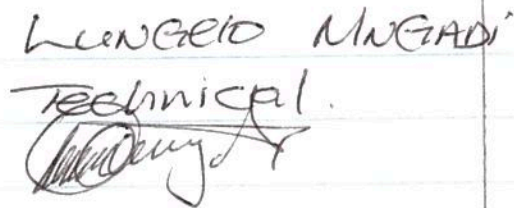 LUNGELO MNGADI
Technical.